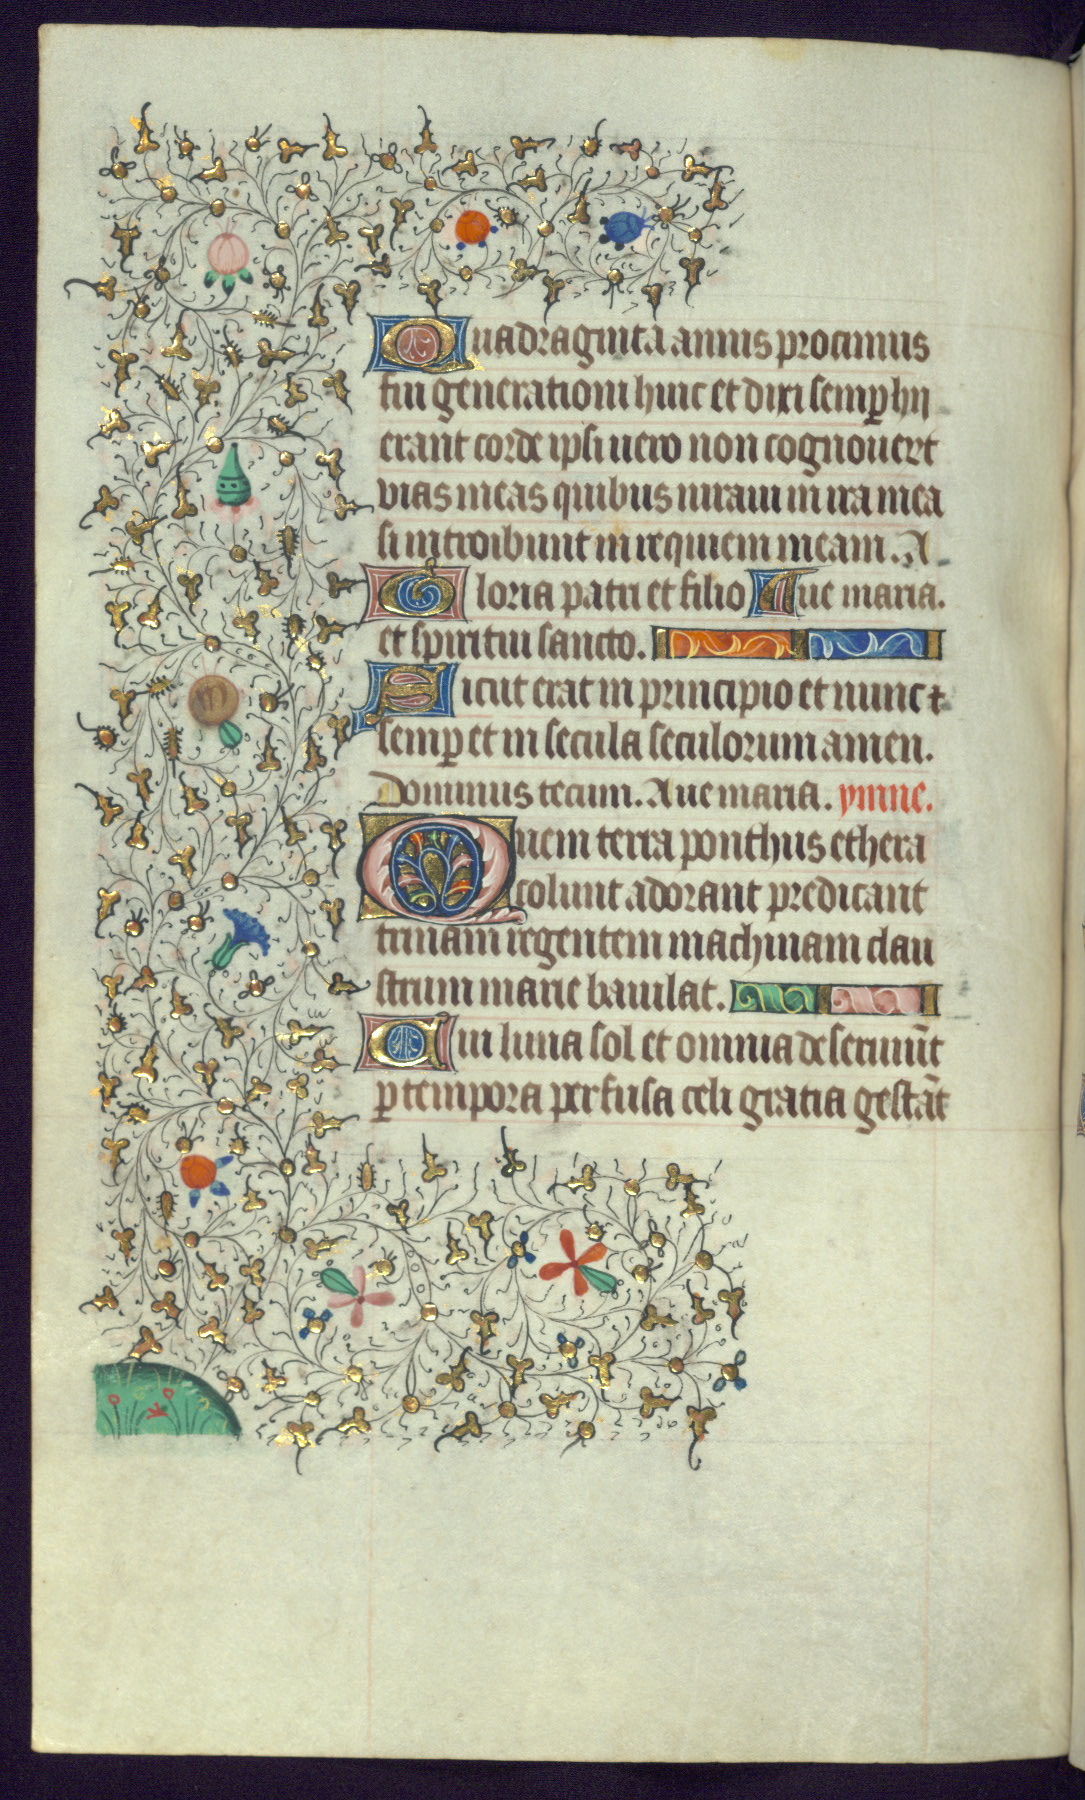 Quadraginta annis proximus
fui generationi huic et dixi semp hii
erant corde ipsi uero non cognouert
vias meas quibus iuraui in ira mea
si introibunt in requiem meam. A
Gloria patri et filio Aue maria.
et spiritui sancto.
Sicut erat in principio et nunc ⁊
semp et in secula seculorum amen.
Dominus tecum. Aue maria. ymne.
Quem terra ponthus ethera
colunt adorant predicant
trinam regentem machinam clau
strum marie baiulat.
Cui luna sol et omnia deseruiūt
p tempora perfusa celi gratia gestāt